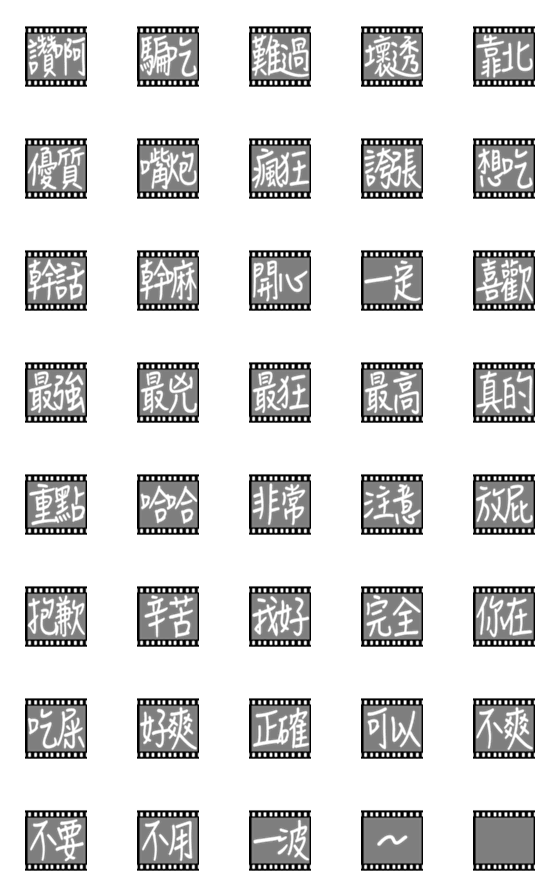 讚啊 騙吃 難過 壞透 靠北
優質 嘴炮 瘋狂 誇張 想吃
幹話 幹嘛 開心 一定 喜歡
最強 最兇 最狂 最高 真的
重點 哈哈 非常 注意 放屁
抱歉 辛苦 我好 完全 你在
吃屎 好爽 正確 可以 不爽
不要 不用 一波 ～